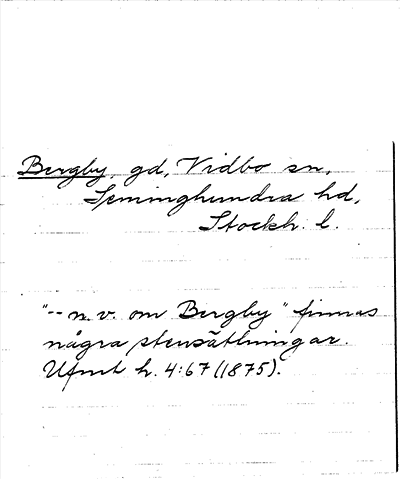 Bergby, gd, Vidbo sn,
Seminghundra hd,
Stockh. l.
"-- n. v. om Bergby" finnas
några stensättningar.
Ufmt h. 4:67 (1875).